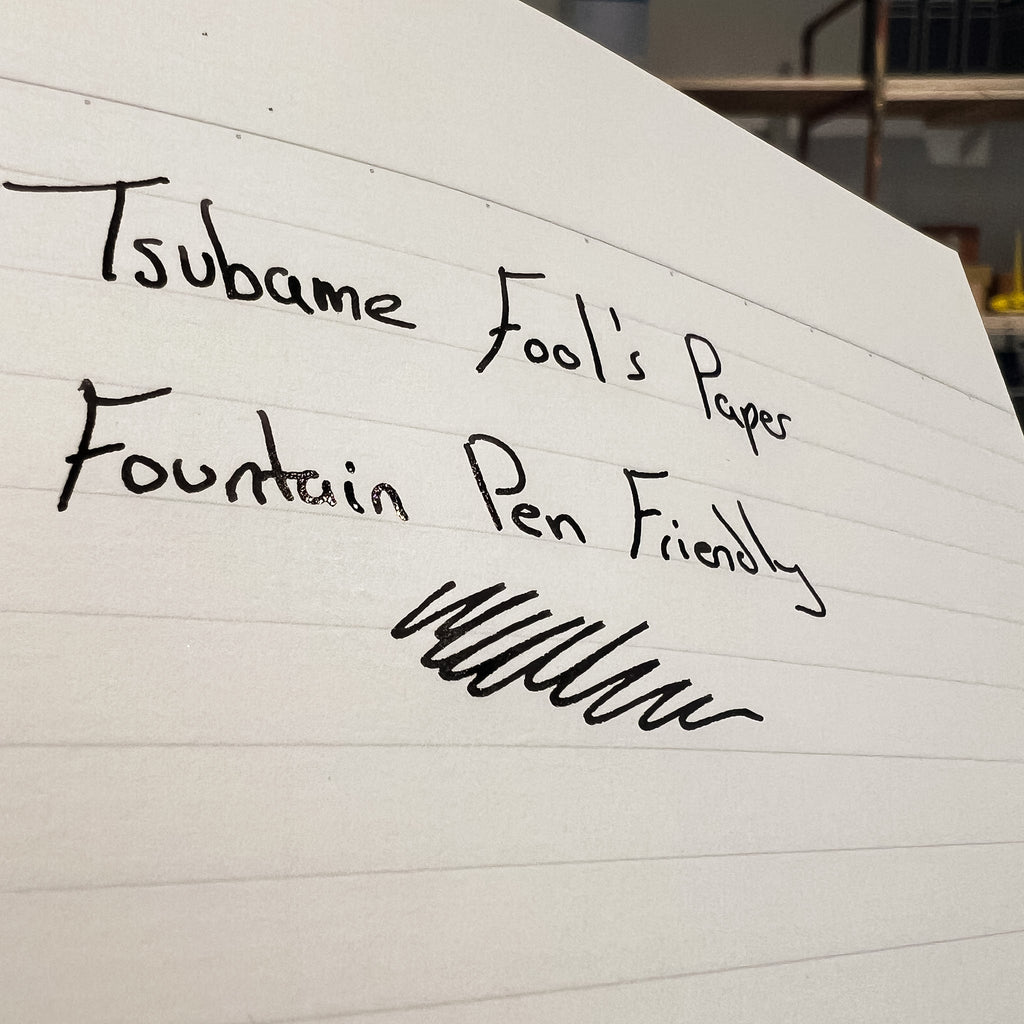 Tsubame Fool's Paper
Fountain Pen Friendly